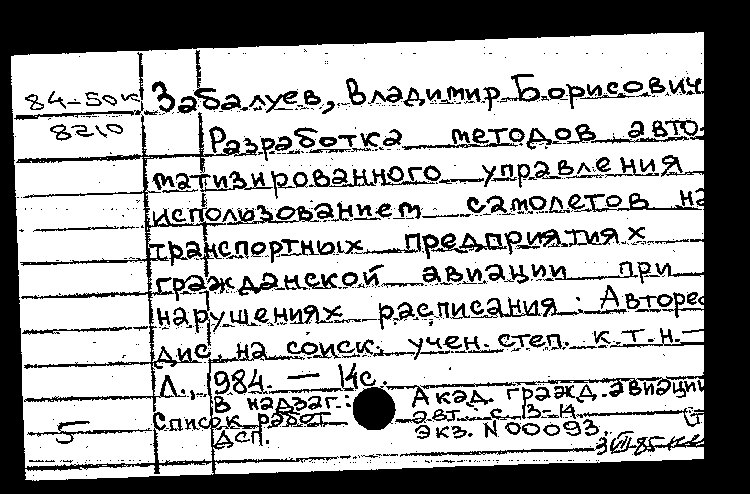 84-50к Забалуев, Владимир Борисович
8210 Разработка методов авто-
матизированного управления
использованием самолетов на
транспортных предприятиях
гражданской авиации при
нарушениях расписания : Авторе
дис. на соиск. учен. степ. к.т.н.—
Л., 1984. — 14с.
В надзаг.: Акад. гражд. авиации
Список работ авт.: с. 13-14
5 Дсп. Экз. N 00093.